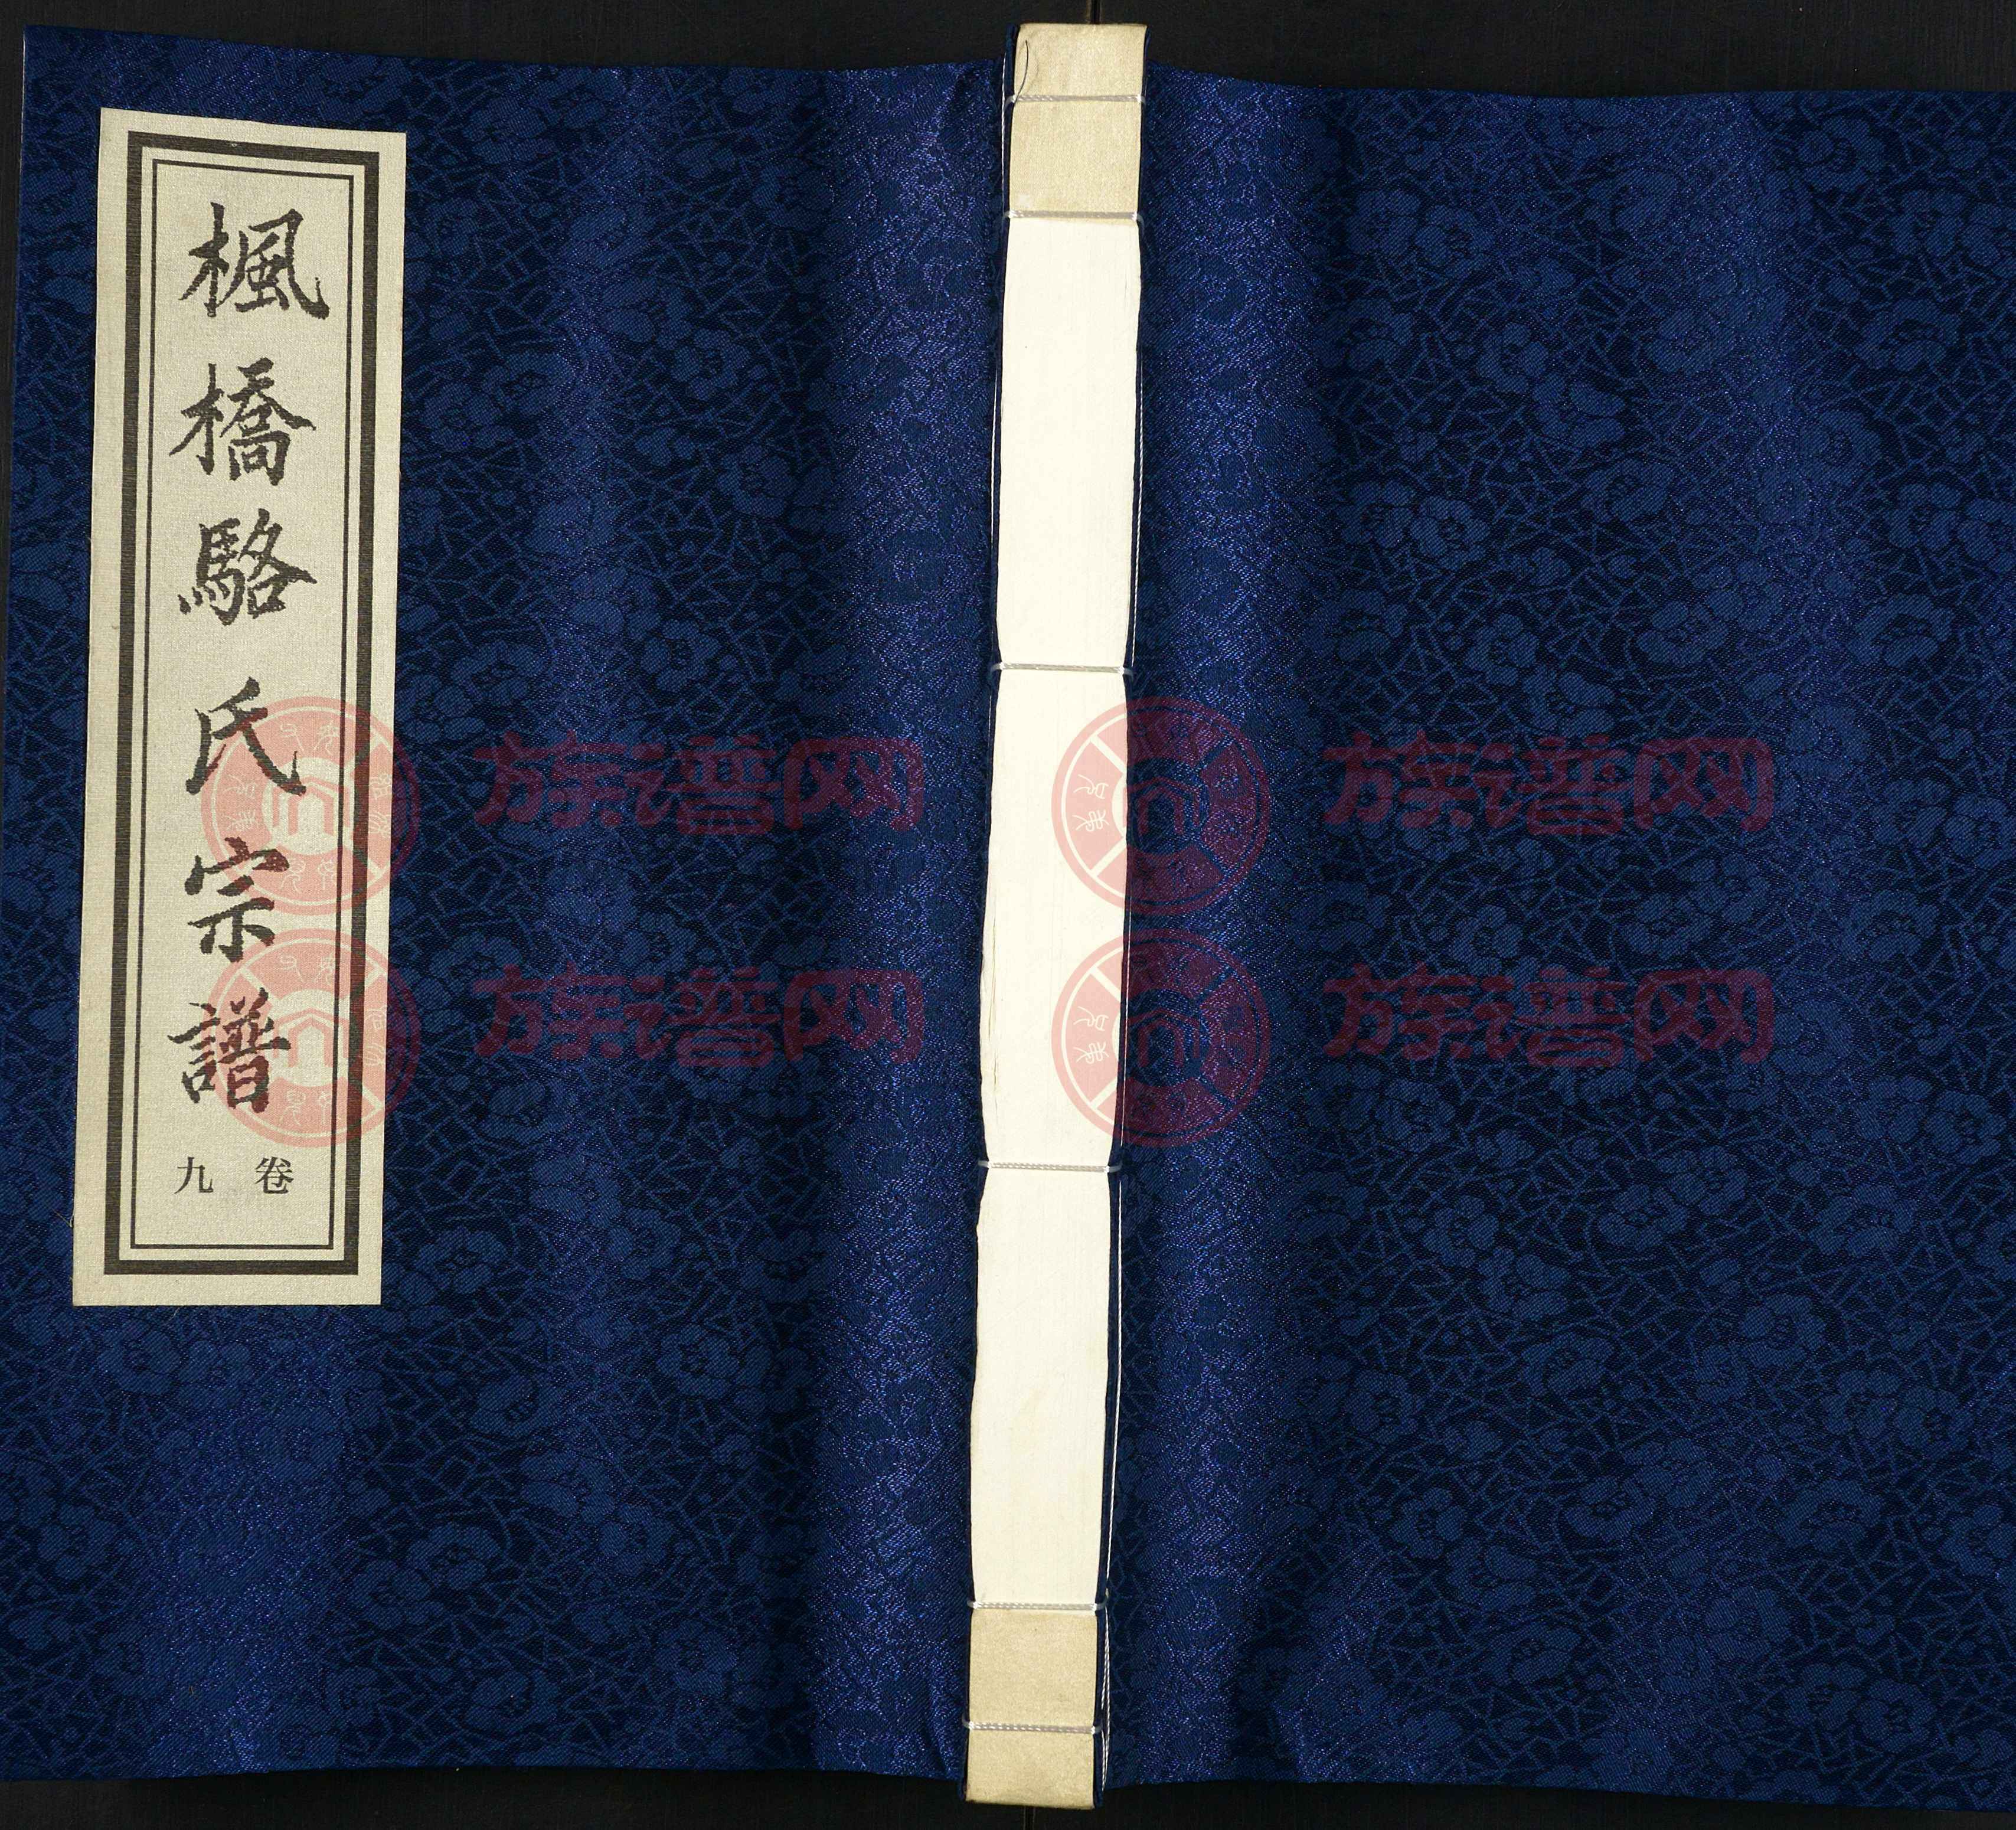 楓橋駱氏宗譜
卷九
族谱网
族谱网
族谱网
族谱网